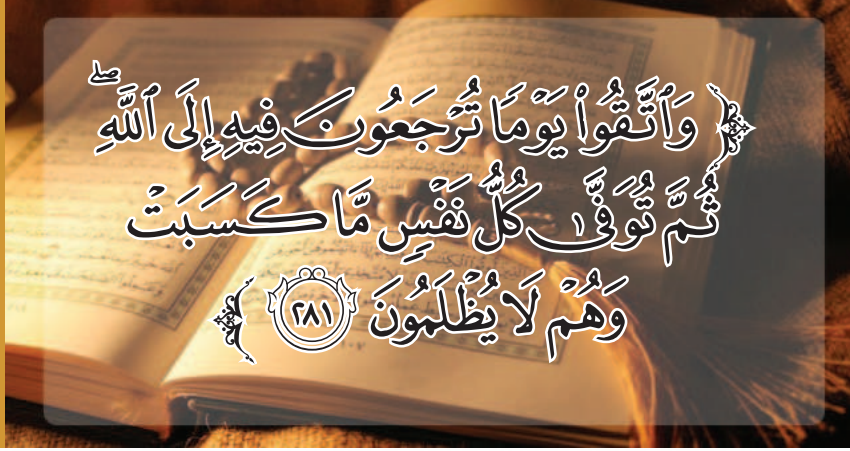 ﴿ وَٱتَّقُوا۟ يَوْمًا تُرْجَعُونَ فِيهِ إِلَى ٱللَّهِ ۖ
ثُمَّ تُوَفَّىٰ كُلُّ نَفْسٍ مَّا كَسَبَتْ
وَهُمْ لَا يُظْلَمُونَ ٢٨١ ﴾